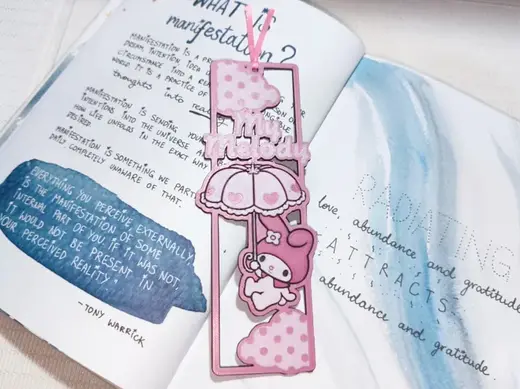 WHAT IS
manifestation?
MANIFESTATION IS A
DREAM INTENTION IDEA
CIRCUMSTANCE INTO A
WORLD IT IS A PRACTICE OF
thoughts into
MANIFESTATION IS SENDING YOUR
INTENTIONS INTO THE UNIVERSE
HOW LIFE UNFOLDS IN THE EXACT WAY
DESIRED
MANIFESTATION IS SOMETHING WE
DAILY COMPLETELY UNAWARE OF THAT.
EVERYTHING YOU PERCEIVE EXTERNALLY,
IS THE MANIFESTATION OF SOME
INTERNAL PART OF YOU. IF IT WAS NOT,
IT WOULD NOT BE PRESENT IN
YOUR PERCEIVED REALITY.
-TONY WARRICK
My
Melody
RADIATING
love, abundance and gratitude
ATTRACTS
abundance and gratitude.